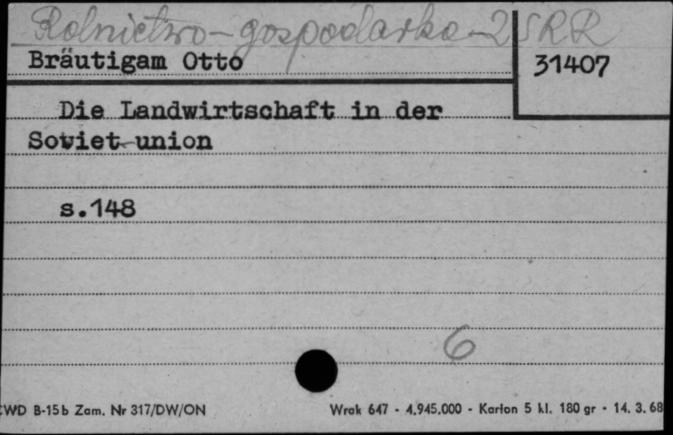 Rolnictwo - gospodarka - ZSRR
Bräutigam Otto
31407
Die Landwirtschaft in der
Soviet-union
s.148
6
CWD B-15b Zam. Nr 317/DW/ON
Wrak 647 - 4.945.000 - Karton 5 kl. 180 gr - 14. 3. 68